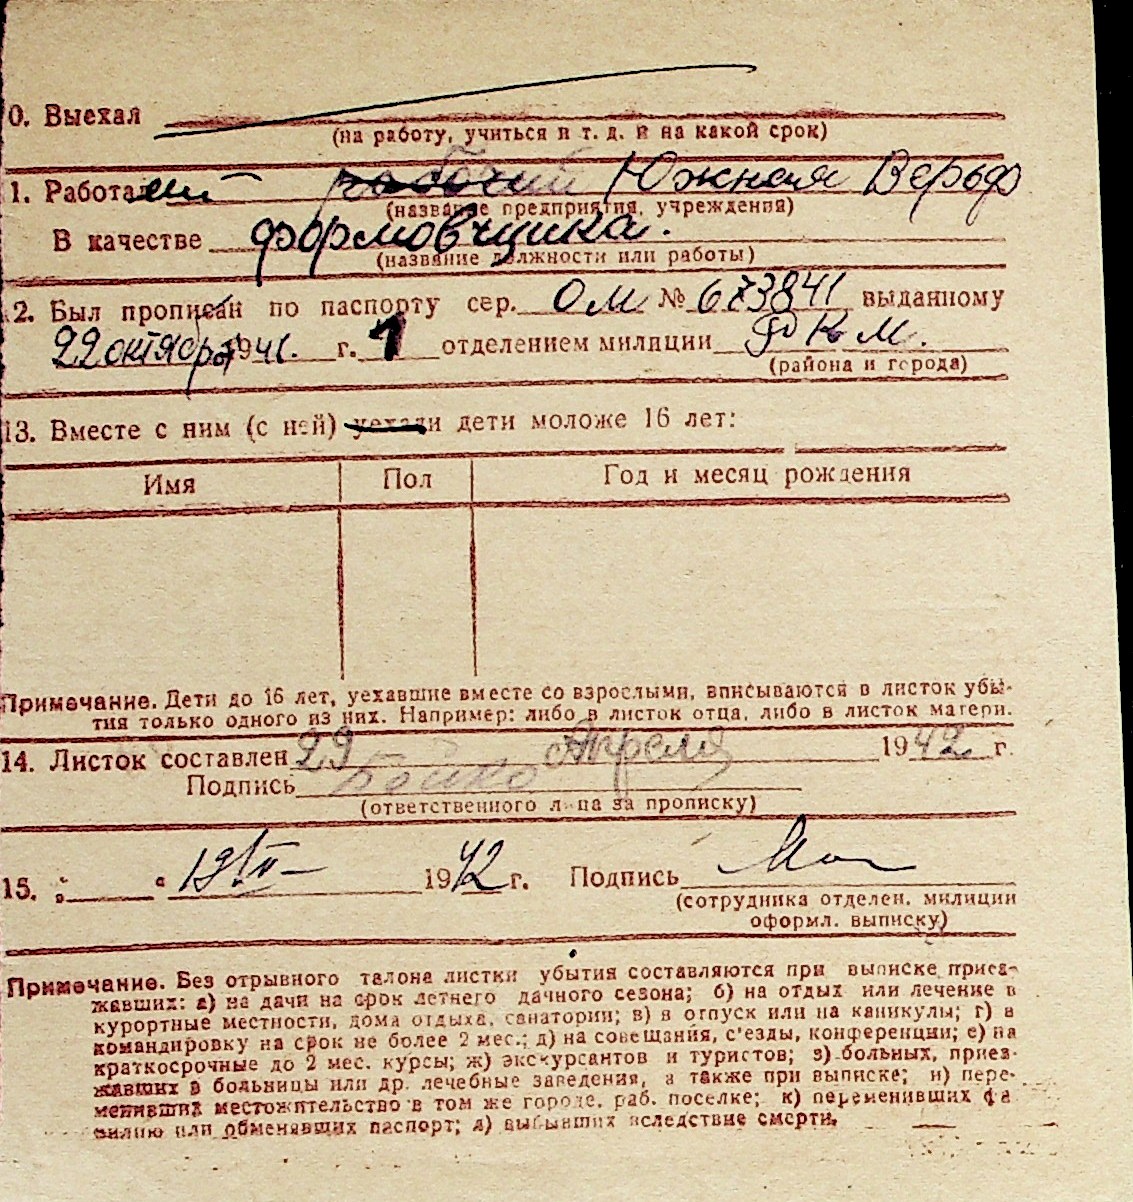 0. Выехал
(на работу, учиться и т. д. и на какой срок)
1. Работа рабочий Южная Верфь
(название предприятия, учреждения)
В качестве формовщика.
(название должности или работы)
2. Был прописан по паспорту сер. ОМ № 673841 выданному
22 октября 1941. г. 1 отделением милиции РКМ.
(района и города)
13. Вместе с ним (с ней) уехали дети моложе 16 лет:
Имя Пол Год и месяц рождения
Примечание. Дети до 16 лет, уехавшие вместе со взрослыми, вписываются в листок убы-
тия только одного из них. Например: либо в листок отца, либо в листок матери.
14. Листок составлен 29 Апреля 1942 г.
Подпись Бойко
(ответственного лица за прописку)
15. „ “ 1942 г. Подпись
(сотрудника отделен. милиции
оформл. выписку)
Примечание. Без отрывного талона листки убытия составляются при выписке приез-
жавших: а) на дачи на срок летнего дачного сезона; б) на отдых или лечение в
курортные местности, дома отдыха, санатории; в) в отпуск или на каникулы; г) в
командировку на срок не более 2 мес.; д) на совещания, с'езды, конференции; е) на
краткосрочные до 2 мес. курсы; ж) экскурсантов и туристов; з) больных, приез-
жавших в больницы или др. лечебные заведения, а также при выписке; и) пере-
менивших местожительство в том же городе, раб. поселке; к) переменивших фа
милию или обменявших паспорт; л) выбывших вследствие смерти.